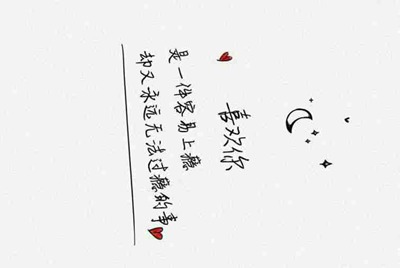 喜欢你
是一件容易上瘾
却又永远无法过瘾的事